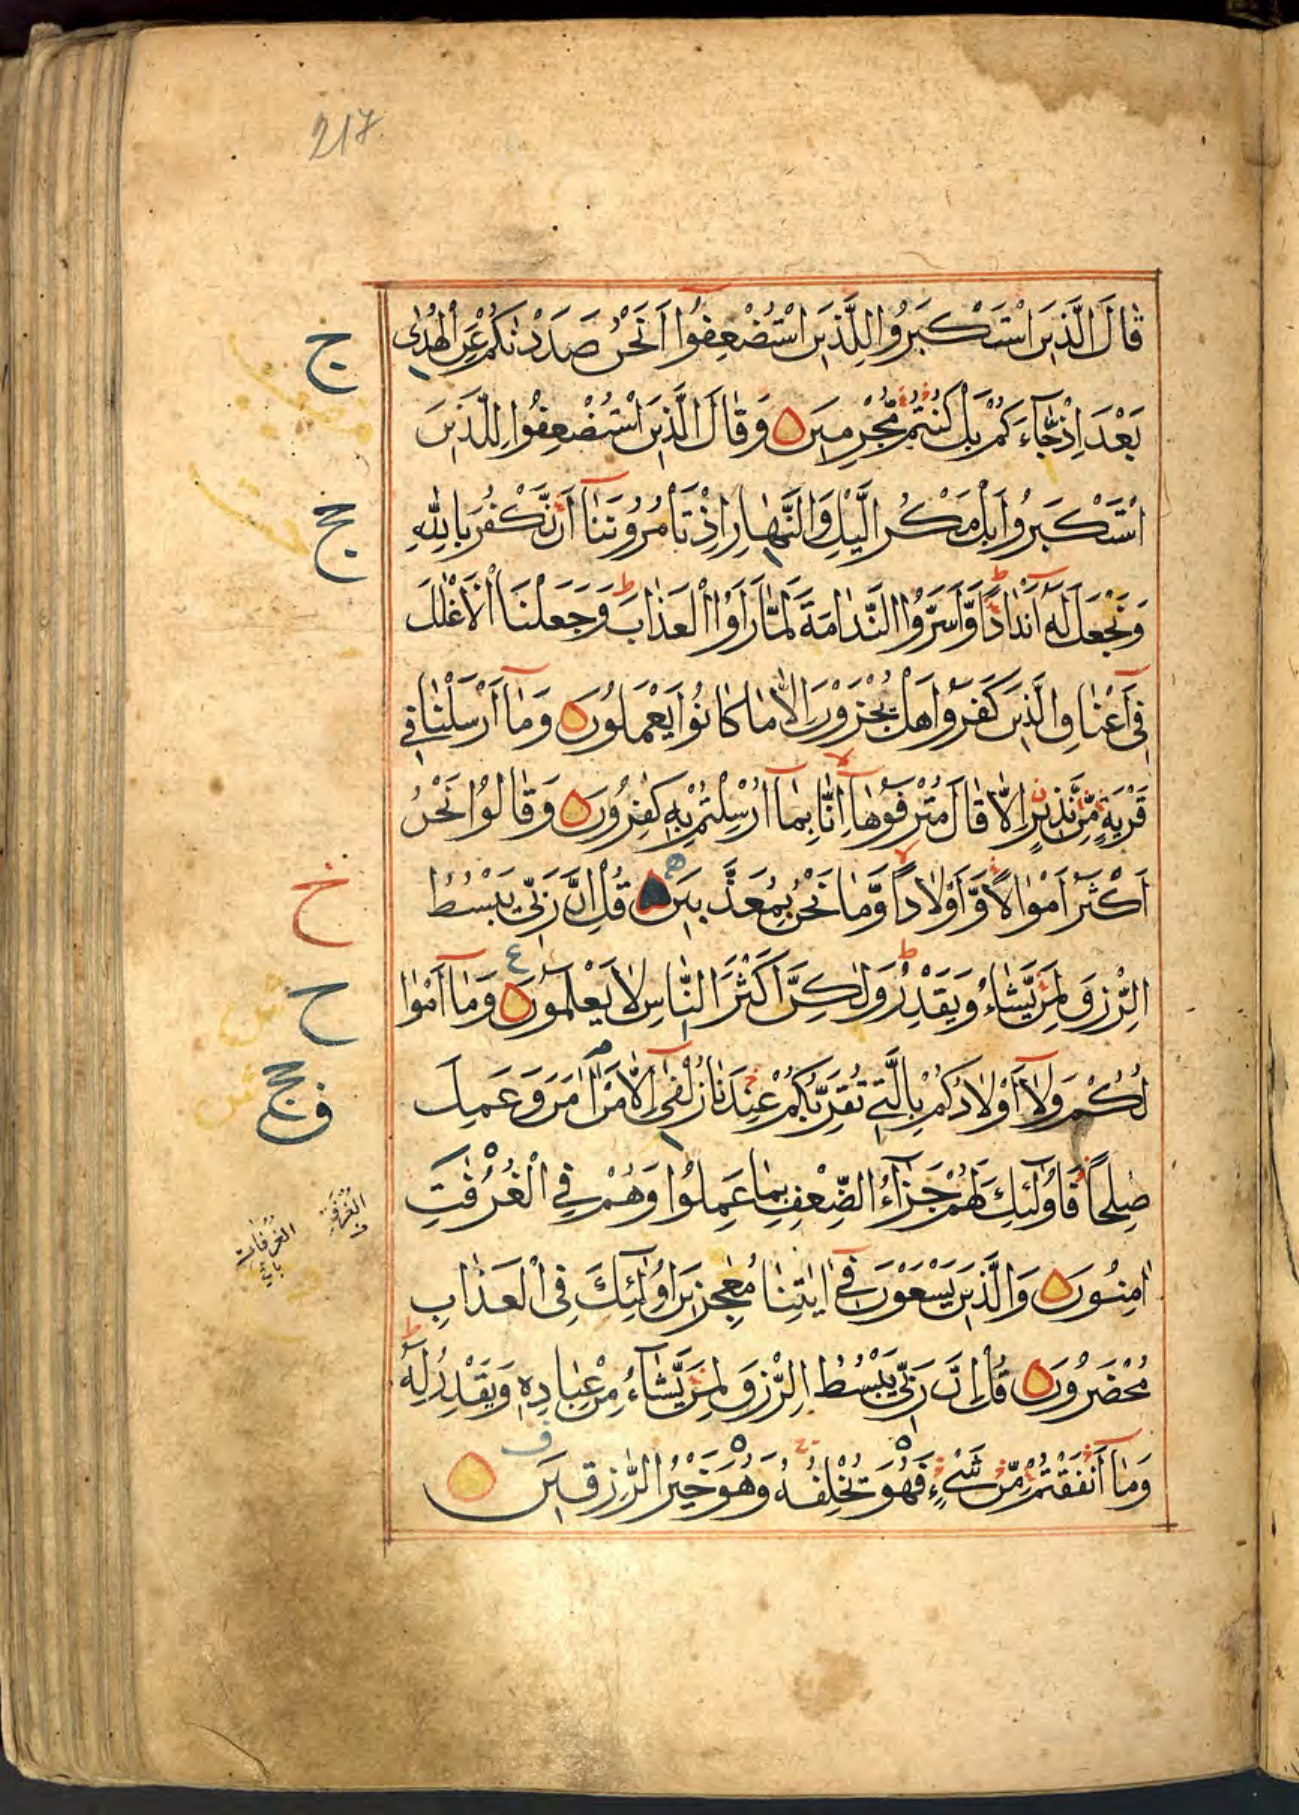 217
قَالَ الَّذِينَ اسْتَكْبَرُوا لِلَّذِينَ اسْتُضْعِفُوا أَنَحْنُ صَدَدْنٰكُمْ عَنِ الْهُدٰى
بَعْدَ اِذْ جَآءَكُمْ بَلْ كُنْتُمْ مُّجْرِمِينَ ۝ وَقَالَ الَّذِينَ اسْتُضْعِفُوا لِلَّذِينَ
اسْتَكْبَرُوا بَلْ مَكْرُ الَّيْلِ وَالنَّهَارِ اِذْ تَأْمُرُونَنَآ اَنْ نَّكْفُرَ بِاللّٰهِ
وَنَجْعَلَ لَهٗ اَنْدَادًا ط وَّاَسَرُّوا النَّدَامَةَ لَمَّا رَاَوُا الْعَذَابَ ط وَجَعَلْنَا الْاَغْلٰلَ
فِىٓ اَعْنَاقِ الَّذِينَ كَفَرُوا هَلْ يُجْزَوْنَ اِلَّا مَا كَانُوا يَعْمَلُونَ ۝ وَمَآ اَرْسَلْنَا فِى
قَرْيَةٍ مِّنْ نَّذِيرٍ اِلَّا قَالَ مُتْرَفُوهَآ لا اِنَّا بِمَآ اُرْسِلْتُمْ بِهٖ كٰفِرُونَ ۝ وَقَالُوا نَحْنُ
اَكْثَرُ اَمْوَالًا وَّاَوْلَادًا لا وَّمَا نَحْنُ بِمُعَذَّبِينَ ۝ قُلْ اِنَّ رَبِّى يَبْسُطُ
الرِّزْقَ لِمَنْ يَّشَآءُ وَيَقْدِرُ ط وَلٰكِنَّ اَكْثَرَ النَّاسِ لَا يَعْلَمُونَ ۝ ع وَمَآ اَمْوَا
لُكُمْ وَلَآ اَوْلَادُكُمْ بِالَّتِى تُقَرِّبُكُمْ عِنْدَنَا زُلْفٰىٓ اِلَّا مَنْ اٰمَنَ وَعَمِلَ
صٰلِحًا فَاُولٰٓئِكَ لَهُمْ جَزَآءُ الضِّعْفِ بِمَا عَمِلُوا وَهُمْ فِى الْغُرُفٰتِ
اٰمِنُونَ ۝ وَالَّذِينَ يَسْعَوْنَ فِىٓ اٰيٰتِنَا مُعٰجِزِينَ اُولٰٓئِكَ فِى الْعَذَابِ
مُحْضَرُونَ ۝ قُلْ اِنَّ رَبِّى يَبْسُطُ الرِّزْقَ لِمَنْ يَّشَآءُ مِنْ عِبَادِهٖ وَيَقْدِرُ لَهٗ ط
وَمَآ اَنْفَقْتُمْ مِّنْ شَىْءٍ فَهُوَ يُخْلِفُهٗ وَهُوَ خَيْرُ الرّٰزِقِينَ ۝
ج
خ
ح
الغرفة
ف
الغرفات